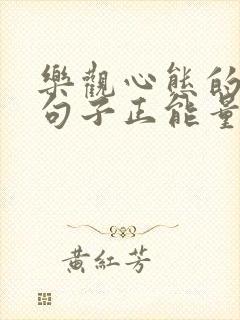 樂觀心態的
句子正能量
黃紅芳